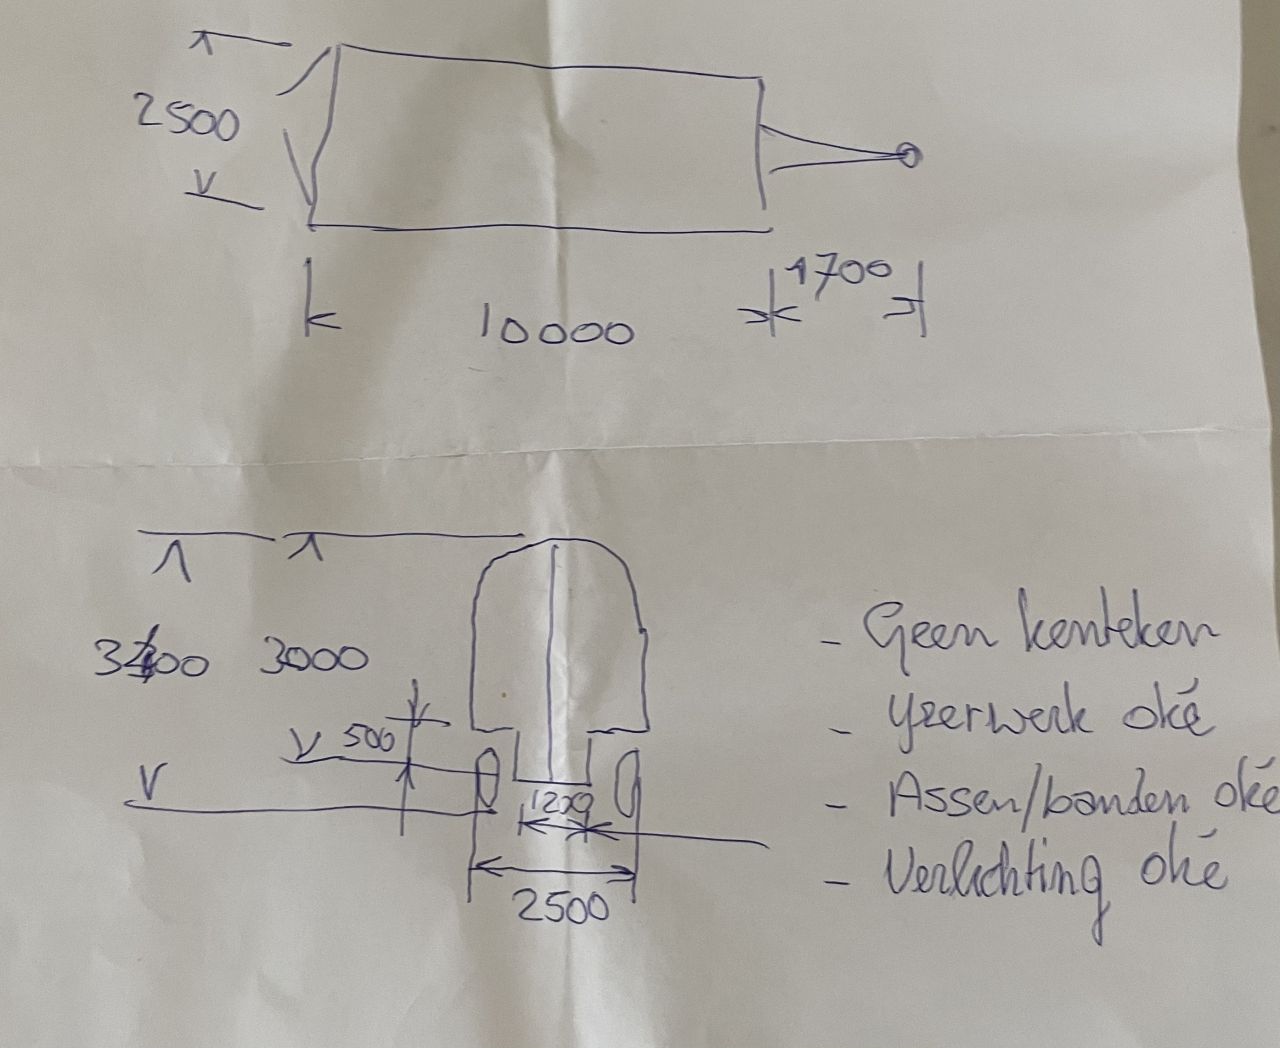 2500
1700
10000
3000
500
1200
2500
- Geen kenteken
- Yzerwerk oké
- Assen/banden oké
- Verlichting oké